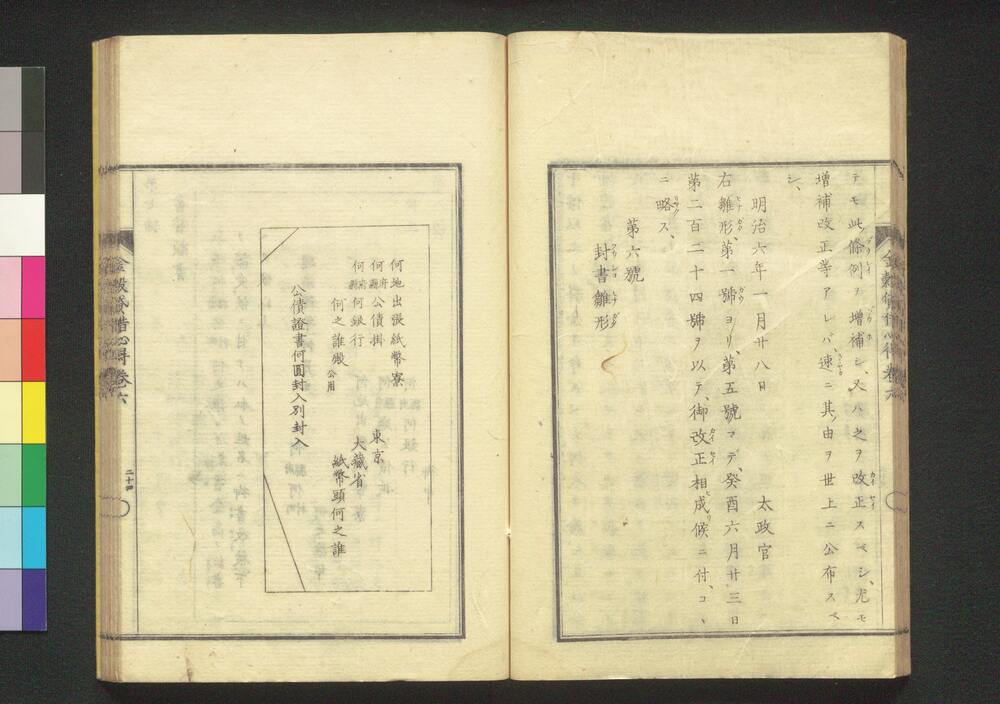 テモ此條例ヲ增補シ、又ハ之ヲ改正スベシ、尤モ
增補改正等アレバ、速ニ其由ヲ世上ニ公布スベ
シ、
明治六年一月廿八日 太政官
右雛形、第一號ヨリ、第五號マデ、癸酉六月廿三日
第二百二十四號ヲ以テ、御改正相成候ニ付、コヽ
ニ略ス、
第六號
封書雛形
何地出張紙幣寮
何府縣公債掛
何府縣何銀行
何之誰殿 公用
公債證書何圓封入別封入
東京
大藏省
紙幣頭何之誰
金穀貸借心得 卷六
二十四